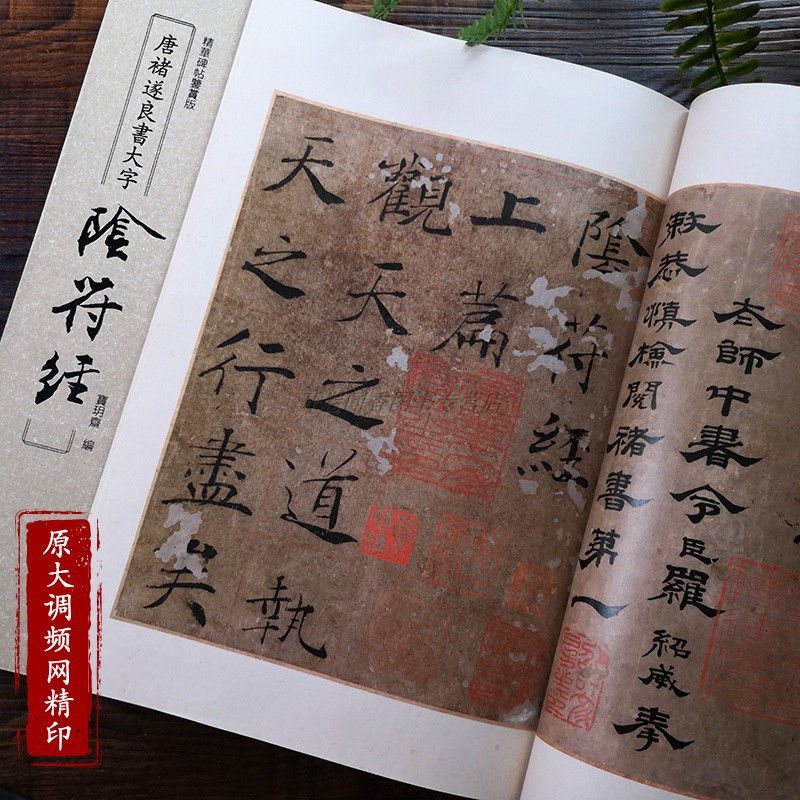 精華碑帖鑒賞版
唐褚遂良書大字
陰符經
寶玥齋 編
太師中書令臣羅紹威奉
敕恭慎檢閱褚書第一
陰符經
上篇
觀天之道執
天之行盡矣
图书专营店
原大调频网精印